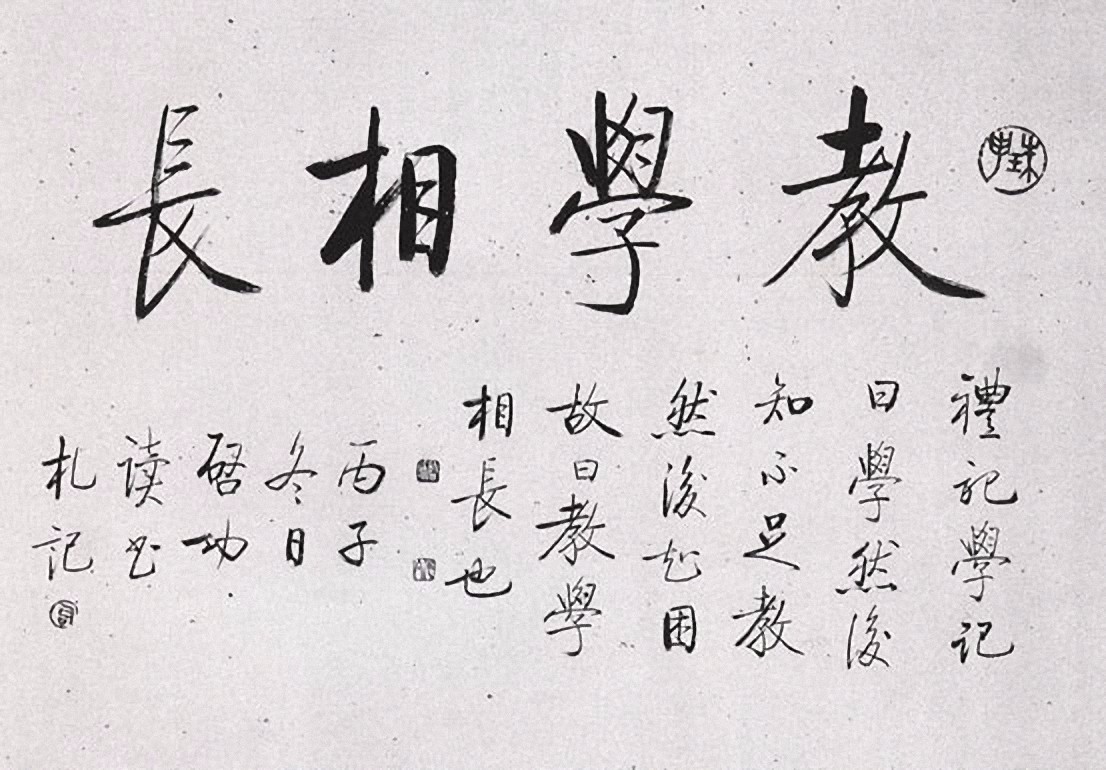 教學相長
禮記學記
曰學然後
知不足教
然後知困
故曰教學
相長也
丙子
冬日
啓功
读书
札記
珠申